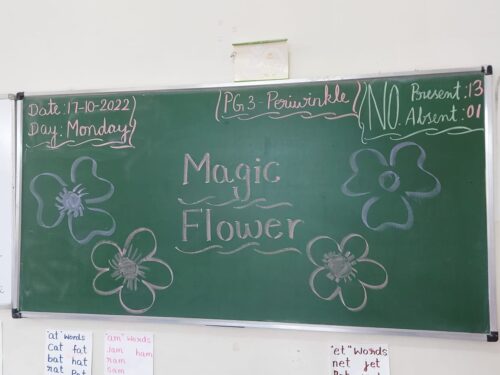 Date: 17-10-2022
Day: Monday
PG3 - Periwinkle
NO. Present: 13
Absent: 01
Magic
Flower
"at" words
Cat fat
bat hat
rat Pat
"am" words
Jam ham
ram
Sam
"et" words
net jet